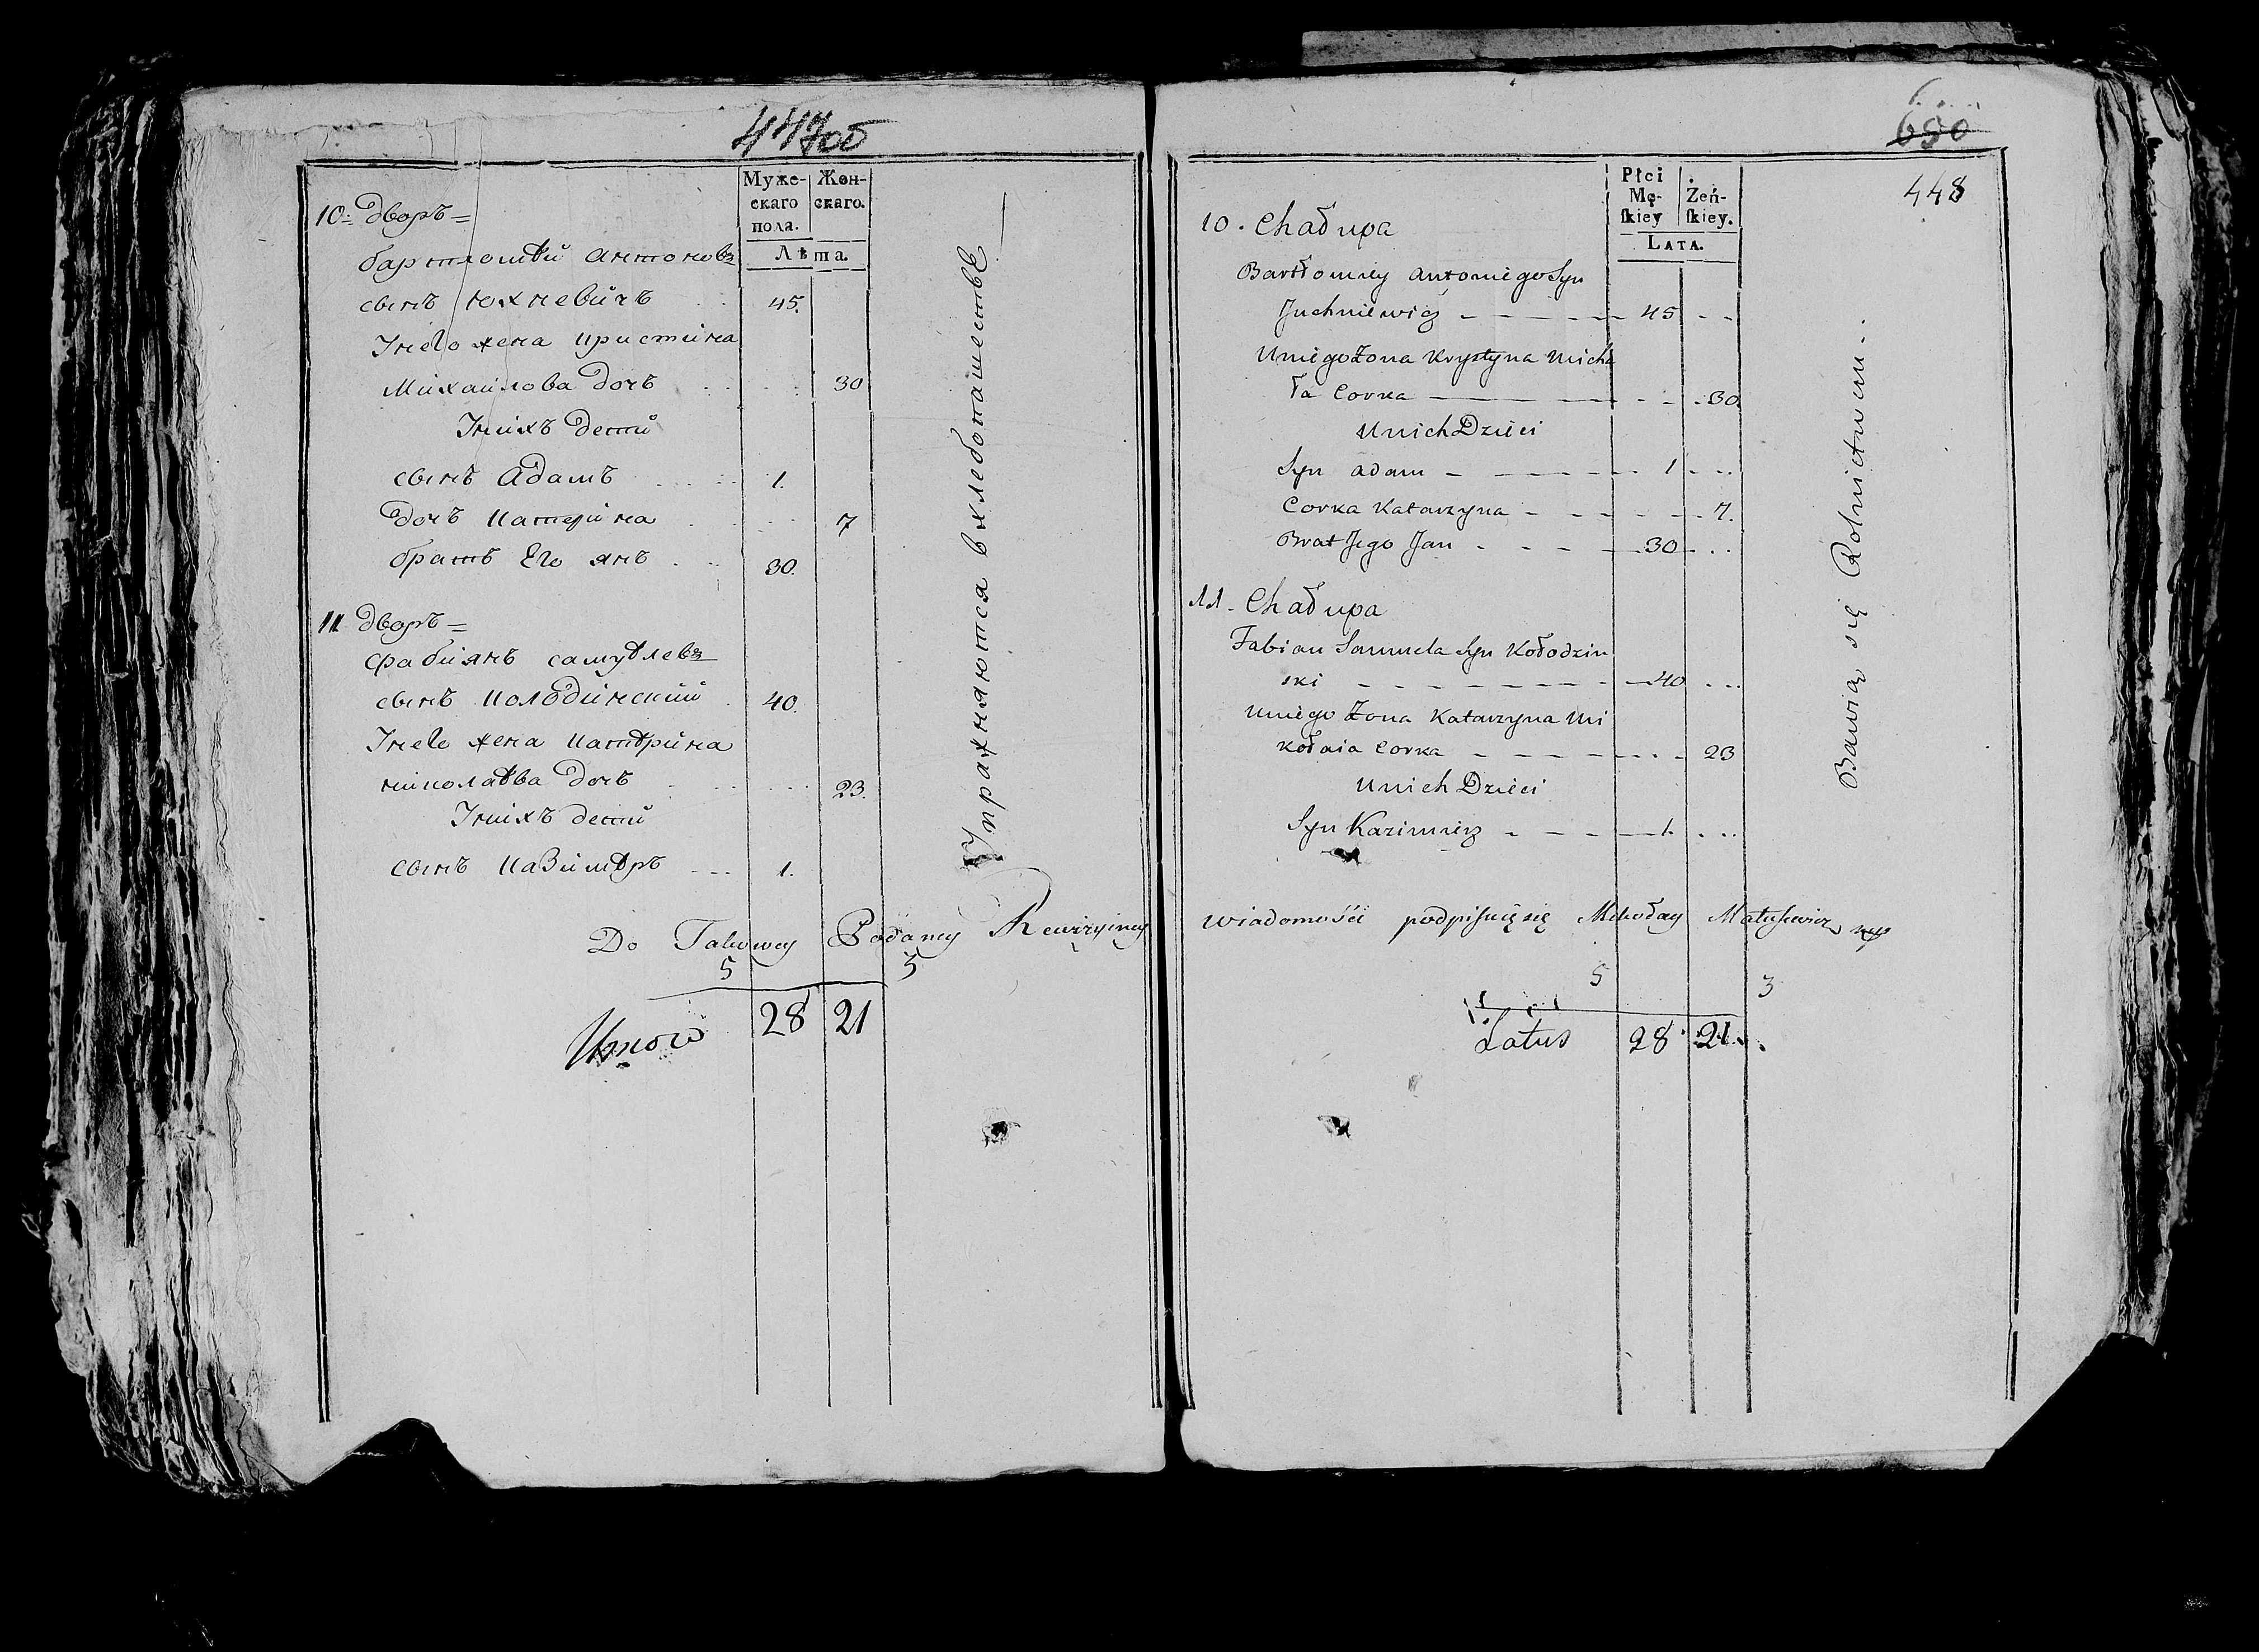 447об
Муже-
скаго
пола.
Жен-
скаго.
Лѣта.
10: Дворъ =
бартломѣй антоновъ
сынъ юхневичъ 45.
Унего жена кристина
Михайлова дочь 30
Унихъ дети
сынъ Адамъ 1.
Дочь катерина 7
братъ Его янъ 30.
11 Дворъ =
фабіянъ самуѣлевъ
сынъ колодинский 40.
Унего жена катѣрина
николаѣва дочь 23.
Унихъ дети
сынъ казимѣръ 1.
Упражняются в хлебопашествѣ
Do Takowey Podaney Rewizyiney
5 3
Итого 28 21
650
448
Płci
Mę-
skiey
Żeń-
skiey.
LATA.
10. Chałupa
Bartłomiey Antoniego Syn
Juchniewicz 45
Uniego Żona Krystyna Micha
ła Corka 30.
Unich Dzieci
Syn Adam 1
Corka Katarzyna 7.
Brat Jego Jan 30
11. Chałupa
Fabian Samuela Syn Kołodzin
ski 40
Uniego Żona Katarzyna Mi
kołaia Corka 23
Unich Dzieci
Syn Kazimierz 1.
Bawią się Rolnictwem.
wiadomości podpisuię się Mikołay Matusewicz mp
5 3
Latus 28. 21.